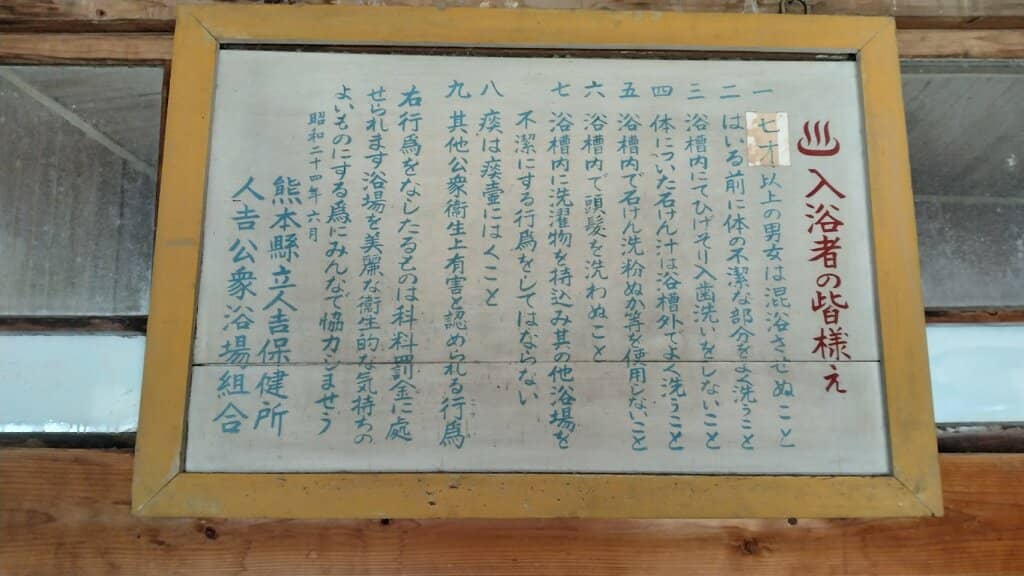 ♨入浴者の皆様え
一 七才以上の男女は混浴させぬこと
二 はいる前に体の不潔な部分をよく洗うこと
三 浴槽内にてひげそり入歯洗いをしないこと
四 体についた石けん汁は浴槽外でよく洗うこと
五 浴槽内で石けん洗粉ぬか等を使用しないこと
六 浴槽内で頭髪を洗わぬこと
七 浴槽内に洗濯物を持込み其の他浴場を
不潔にする行為をしてはならない
八 痰は痰壷にはくこと
九 其他公衆衛生上有害と認められる行為
右行為をなしたるものは科料罰金に處
せられます浴場を美麗な衛生的な気持ちの
よいものにする為にみんなで協力しませう
昭和二十四年六月
熊本縣立人吉保健所
人吉公衆浴場組合